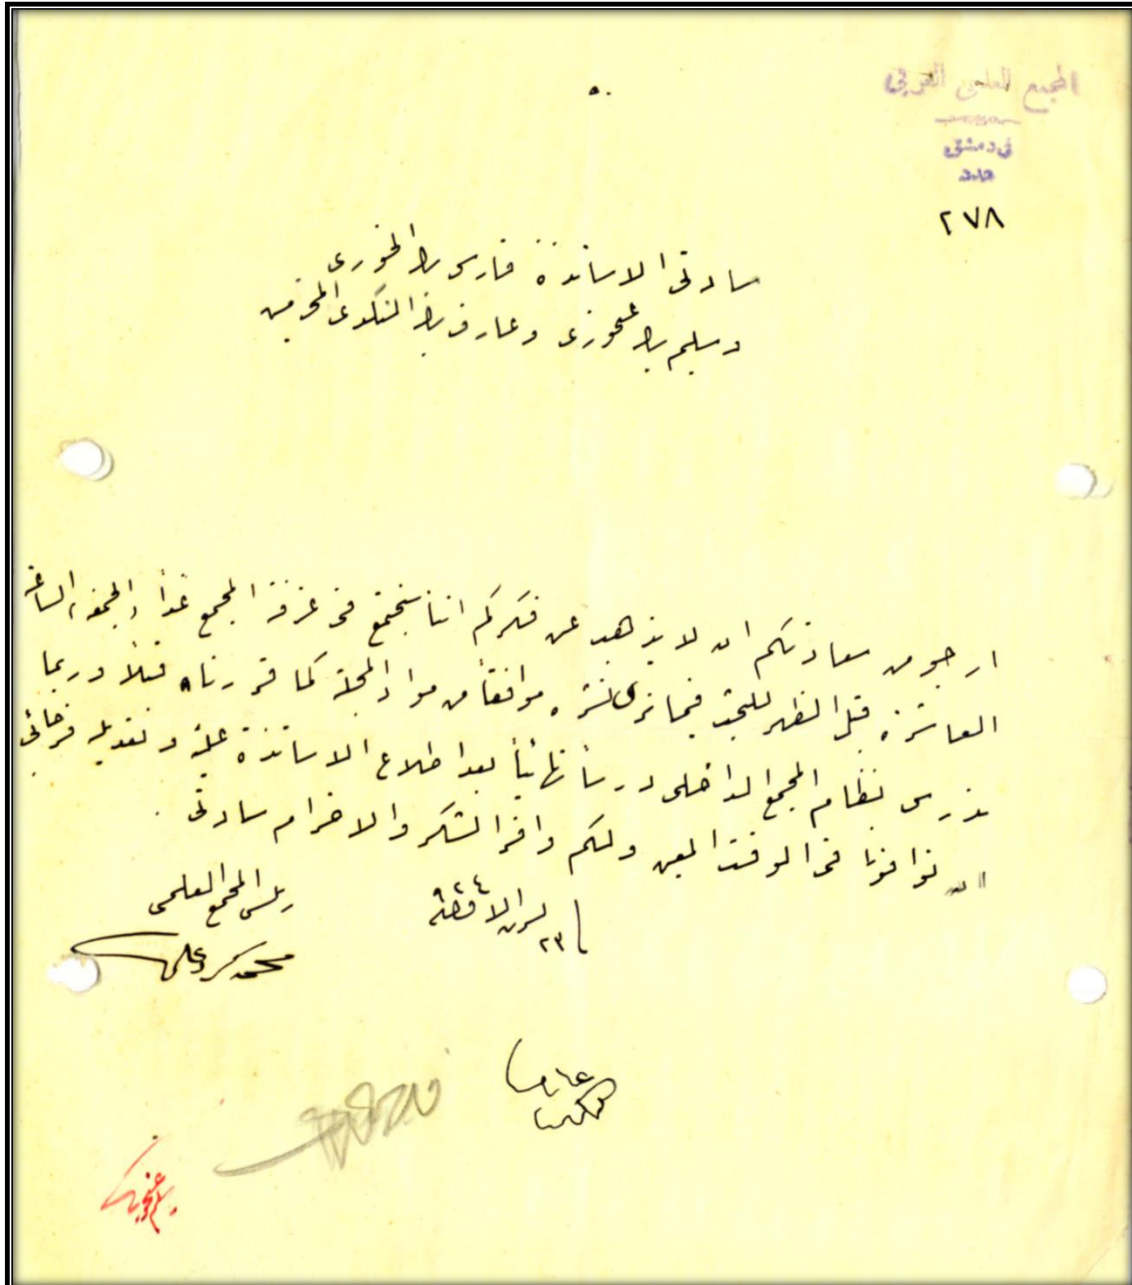 المجمع العلمي العربي
في دمشق
عدد
٢٧٨
سادتي الاساتذة فارس بك الخوري
وسليم بك عنحوري وعارف بك النكدي المحترمين
ارجو من سعادتكم ان لا يذهب عن فكركم اننا سنجتمع في غرفة المجمع غداً الجمعة الساعة
العاشرة قبل الظهر للبحث فيما نرى نشره موافقاً من مواد المجلة كما قررناه قبلاً وربما
ندرس نظام المجمع الداخلي درساً نهائياً بعد اطلاع الاساتذة عليه وتعديله فرجائي
ان توافونا في الوقت المعين ولكم وافر الشكر والاحترام سادتي .
٢٣
رئيس المجمع العلمي
محمد كرد علي
عارف النكدي
سليم عنحوري